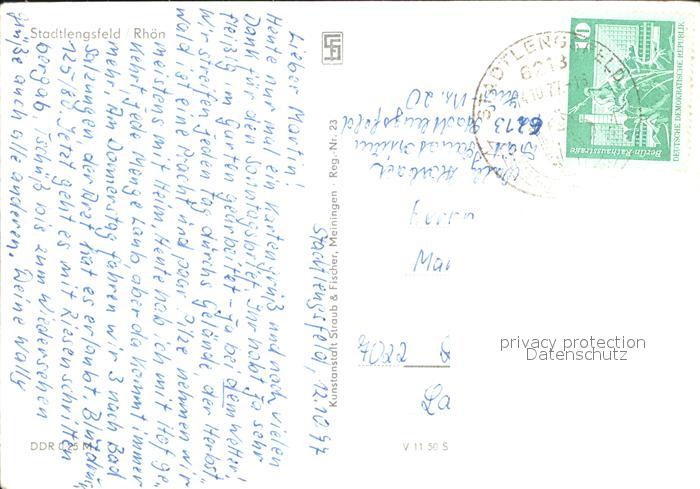 Stadtlengsfeld / Rhön
Stadtlengsfeld, 12.10.77
Lieber Martin!
Heute nur mal ein Kartengruß und noch vielen
Dank für den Sonntagsbrief. Ihr habt ja sehr
fleißig im Garten gearbeitet - ja bei dem Wetter!
Wir streifen jeden Tag durchs Gelände, der Herbst-
wald ist eine Pracht und paar Pilze nehmen wir
meistens mit Heim. Heute hab ich mit Hof ge-
kehrt jede Menge Laub, aber da kommt immer
mehr. Am Donnerstag fahren wir 3 nach Bad
Salzungen, der Arzt hat es erlaubt, Blutdruck
125/80. Jetzt geht es mit Riesenschritten
bergab. Tschüß bis zum Wiedersehen
Grüße auch alle anderen. Deine Wally
DDR 0,25 M
Kunstanstalt Straub & Fischer, Meiningen · Reg.-Nr. 23
V 11 50 S
6213 Stadtlengsfeld
Nr. 20
STADTLENGSFELD
6213
10
DEUTSCHE DEMOKRATISCHE REPUBLIK
Berlin-Rathausstraße
7022
privacy protection
Datenschutz